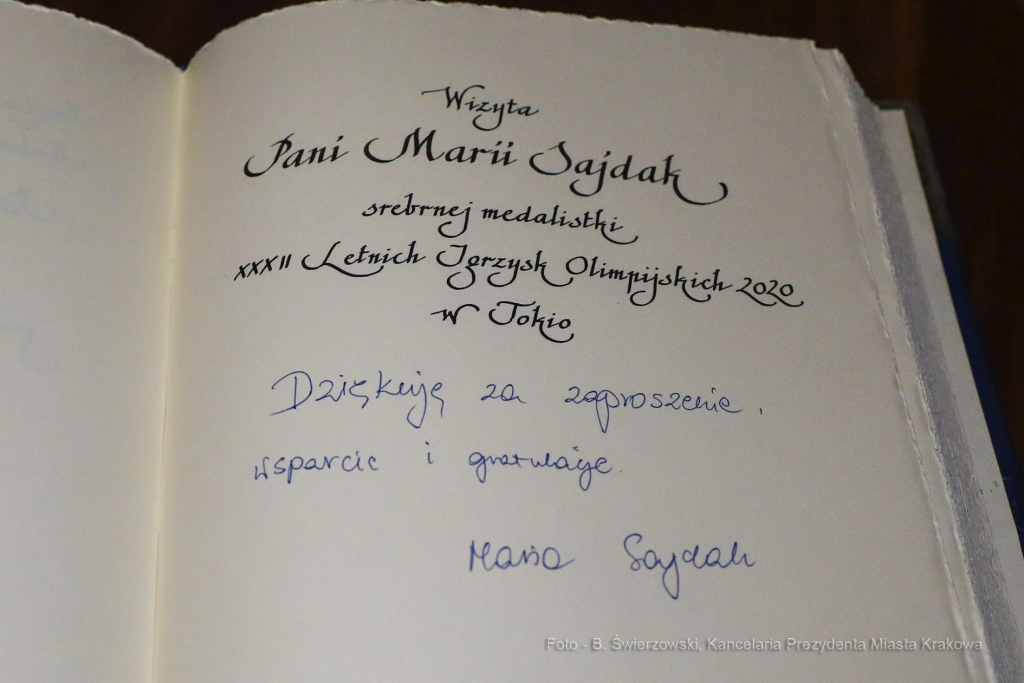 Wizyta
Pani Marii Sajdak
srebrnej medalistki
XXXII Letnich Igrzysk Olimpijskich 2020
w Tokio
Dziękuję za zaproszenie,
wsparcie i gratulacje.
Maria Sajdak
Foto - B. Świerzowski, Kancelaria Prezydenta Miasta Krakowa